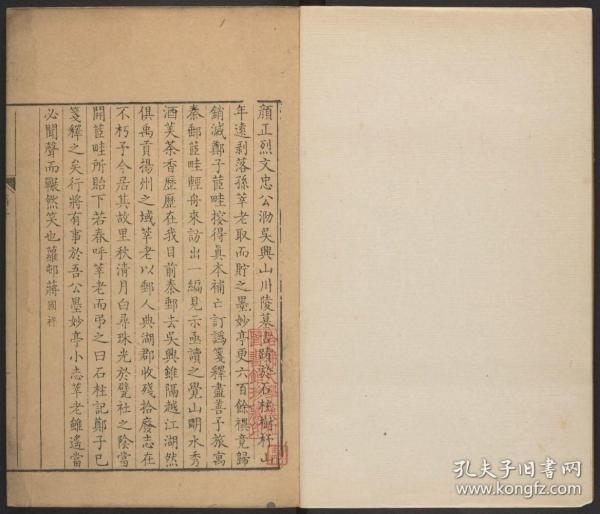 顏正烈文忠公泐吳興山川陵墓古蹟於石柱樹杼山
年遠剥落孫莘老取而貯之墨妙亭更六百餘禩竟歸
銷滅鄭子芷畦搜得眞本補亡訂譌箋釋盡善予旅寓
秦郵芷畦輕舟來訪出一編見示亟讀之覺山明水秀
酒美茶香歷歷在我目前秦郵去吳興雖隔越江湖然
俱禹貢揚州之域莘老以郵人典湖郡收殘拾廢志在
不朽予今居其故里秋清月白尋珠光於甓社之陰當
開芷畦所貽下若春呼莘老而弔之曰石柱記鄭子已
箋釋之矣行將有事於吾公墨妙亭小志莘老雖遙當
必聞聲而囅然笑也蘿邨蔣國祥
孔夫子旧书网
www.kongfz.com